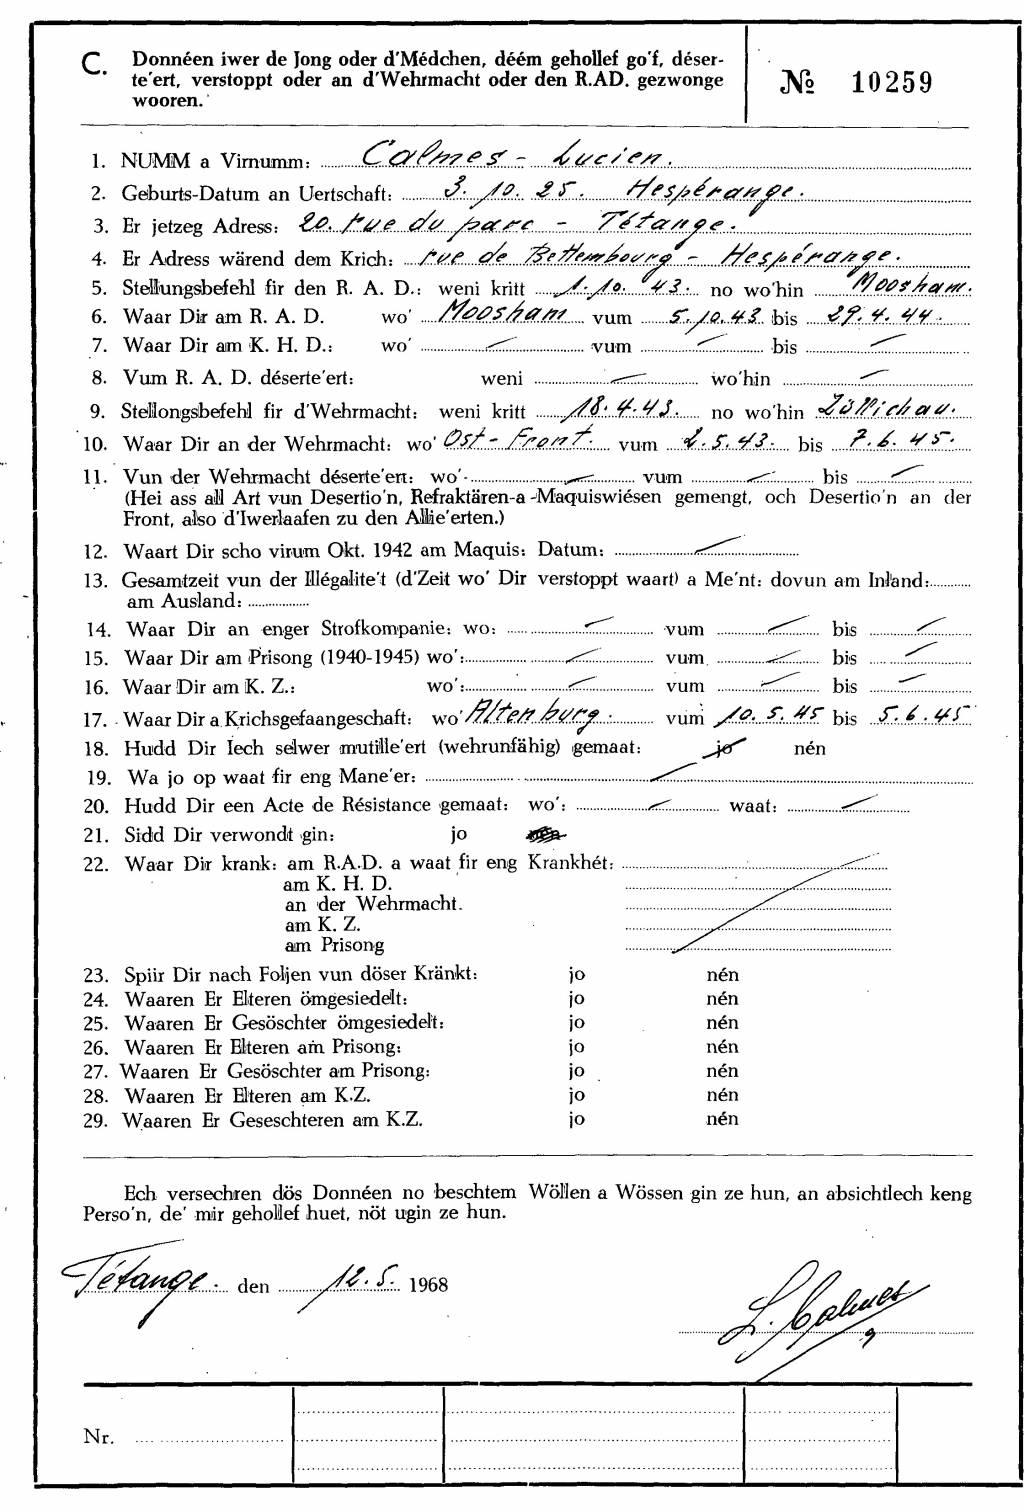 C. Donnéen iwer de Jong oder d'Médchen, déém gehollef go'f, déser-
te'ert, verstoppt oder an d'Wehrmacht oder den R.AD. gezwonge
wooren.
№ 10259
1. NUMM a Virnumm: Calmes - Lucien.
2. Geburts-Datum an Uertschaft: 3. 10. 25. Hespérange.
3. Er jetzeg Adress: 20. rue du parc - Tétange.
4. Er Adress wärend dem Krich: rue de Bettembourg - Hespérange.
5. Stellungsbefehl fir den R. A. D.: weni kritt 1. 10. 43. no wo'hin Moosham.
6. Waar Dir am R. A. D. wo' Moosham vum 5. 10. 43. bis 29. 4. 44.
7. Waar Dir am K. H. D.: wo' — vum — bis —
8. Vum R. A. D. déserte'ert: weni — wo'hin —
9. Stellongsbefehl fir d'Wehrmacht: weni kritt 18. 4. 43. no wo'hin Züllichau.
10. Waar Dir an der Wehrmacht: wo' Ost-Front. vum 2. 5. 43. bis 7. 6. 45.
11. Vun der Wehrmacht déserte'ert: wo' — vum — bis —
(Hei ass all Art vun Desertio'n, Refraktären-a -Maquiswiésen gemengt, och Desertio'n an der
Front, also d'Iwerlaafen zu den Allie'erten.)
12. Waart Dir scho virum Okt. 1942 am Maquis: Datum: —
13. Gesamtzeit vun der Illégalite't (d'Zeit wo' Dir verstoppt waart) a Me'nt: dovun am Inland:
am Ausland:
14. Waar Dir an enger Strofkompanie: wo: — vum — bis —
15. Waar Dir am Prisong (1940-1945) wo': — vum — bis —
16. Waar Dir am K. Z.: wo': — vum — bis —
17. Waar Dir a Krichsgefaangeschaft: wo' Altenburg. vum 10. 5. 45 bis 5. 6. 45
18. Hudd Dir Iech selwer mutille'ert (wehrunfähig) gemaat: jo nén
19. Wa jo op waat fir eng Mane'er: —
20. Hudd Dir een Acte de Résistance gemaat: wo': — waat: —
21. Sidd Dir verwondt gin: jo
22. Waar Dir krank: am R.A.D. a waat fir eng Krankhét:
am K. H. D.
an der Wehrmacht.
am K. Z.
am Prisong
23. Spiir Dir nach Foljen vun döser Kränkt: jo nén
24. Waaren Er Elteren ömgesiedelt: jo nén
25. Waaren Er Gesöschter ömgesiedelt: jo nén
26. Waaren Er Elteren am Prisong: jo nén
27. Waaren Er Gesöschter am Prisong: jo nén
28. Waaren Er Elteren am K.Z. jo nén
29. Waaren Er Geseschteren am K.Z. jo nén
Ech versechren dös Donnéen no beschtem Wöllen a Wössen gin ze hun, an absichtlech keng
Perso'n, de' mir gehollef huet, nöt ugin ze hun.
Tétange. den 12. 5. 1968
L. Calmes
Nr.